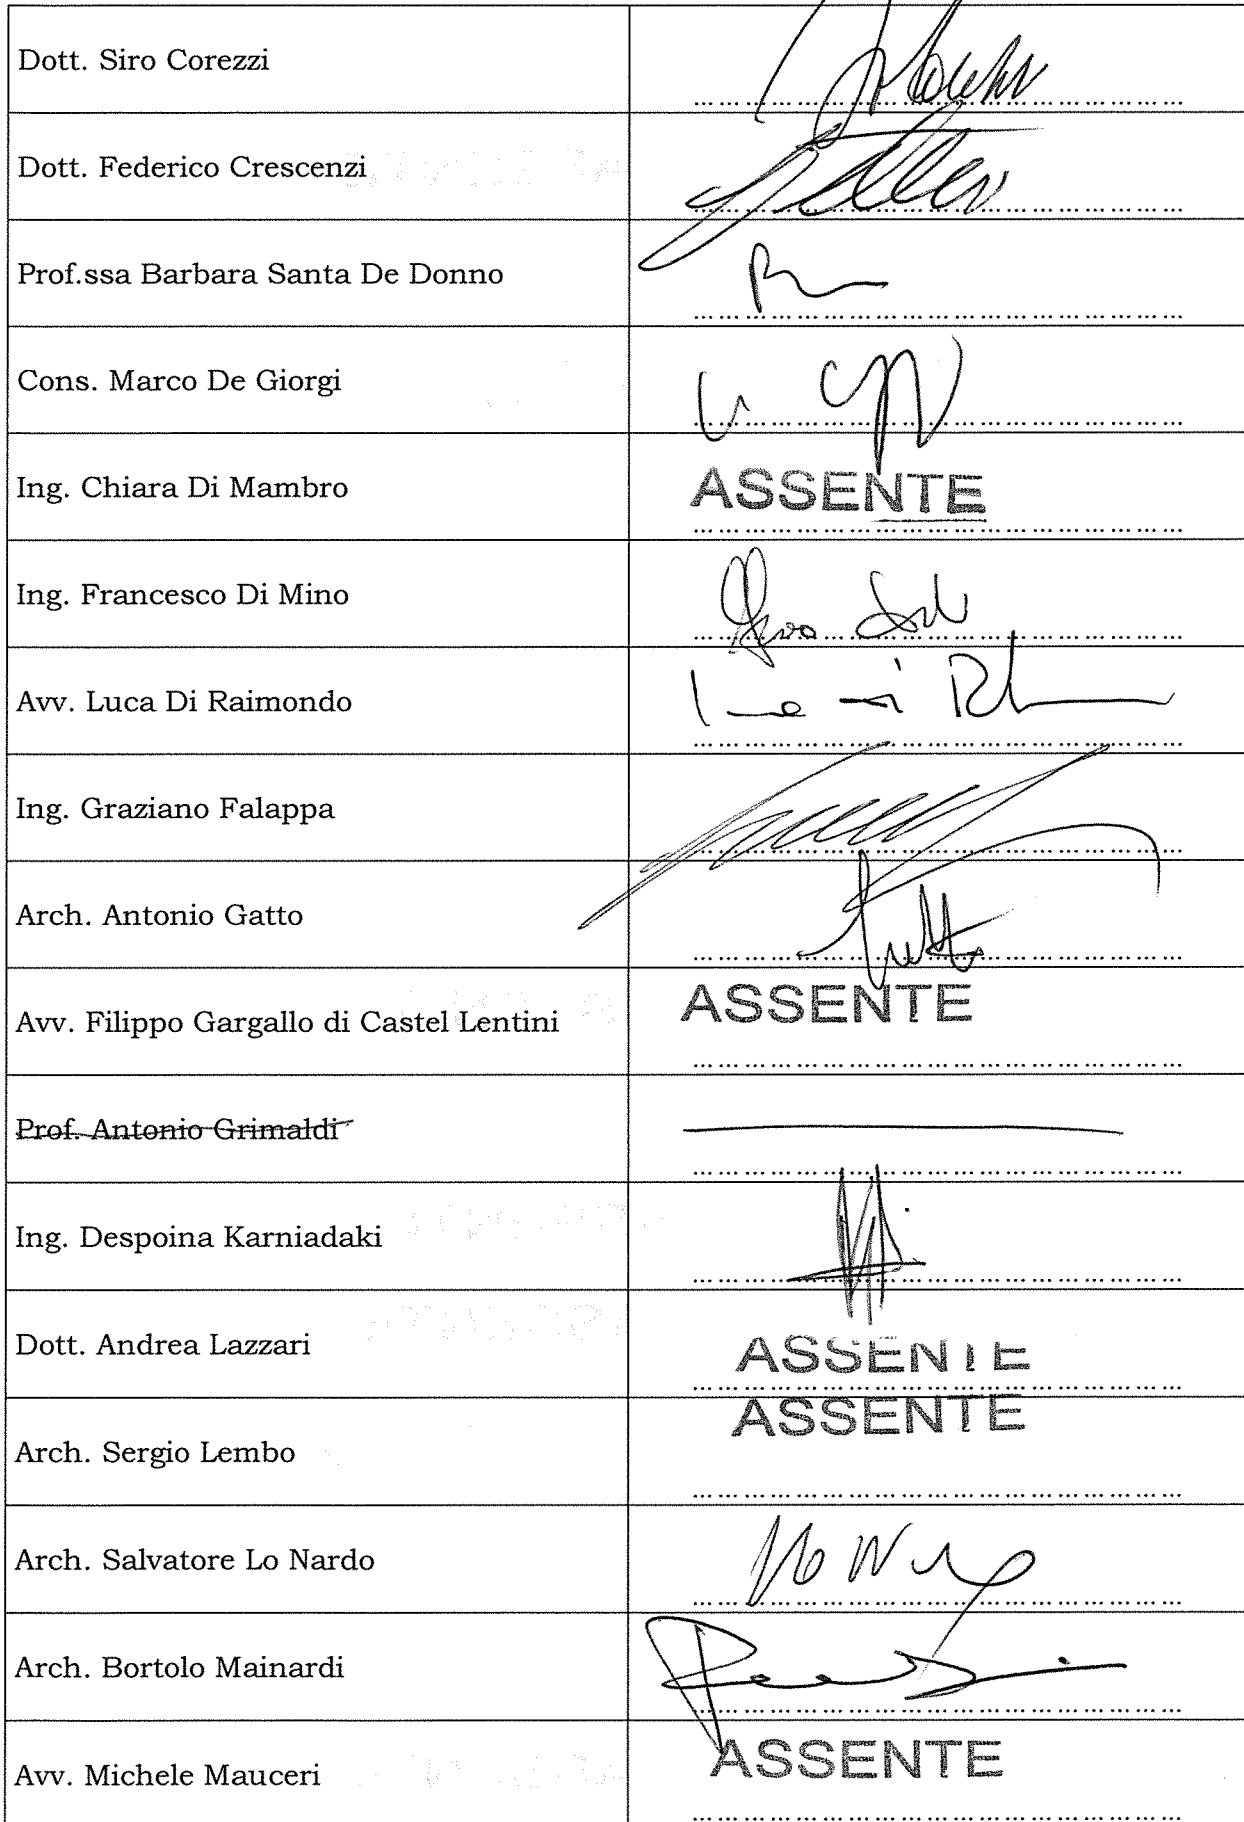 Dott. Siro Corezzi
Dott. Federico Crescenzi
Prof.ssa Barbara Santa De Donno
Cons. Marco De Giorgi
Ing. Chiara Di Mambro ASSENTE
Ing. Francesco Di Mino
Avv. Luca Di Raimondo
Ing. Graziano Falappa
Arch. Antonio Gatto
Avv. Filippo Gargallo di Castel Lentini ASSENTE
Prof. Antonio Grimaldi
Ing. Despoina Karniadaki
Dott. Andrea Lazzari ASSENTE
Arch. Sergio Lembo ASSENTE
Arch. Salvatore Lo Nardo
Arch. Bortolo Mainardi
Avv. Michele Mauceri ASSENTE